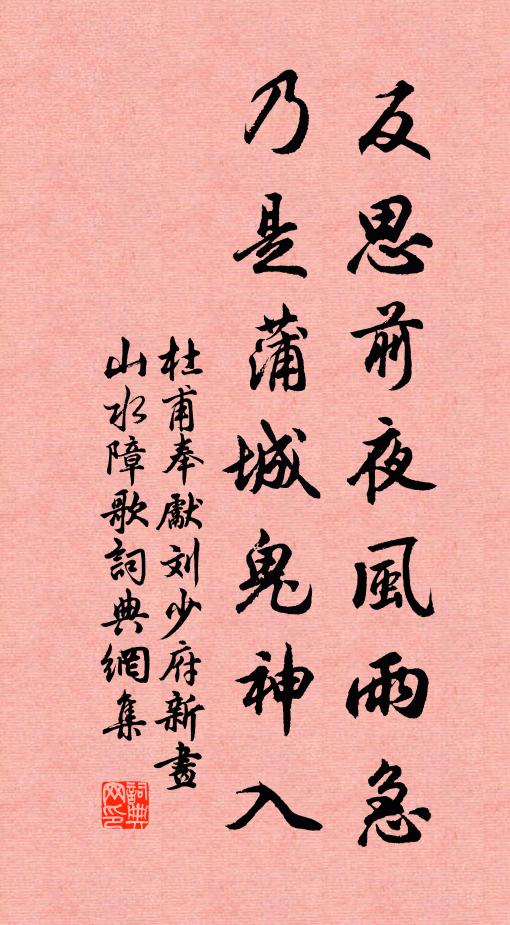 反思前夜風雨急
乃是蒲城鬼神入
杜甫奉獻刘少府新畫
山水障歌詞典網集
詞典网印